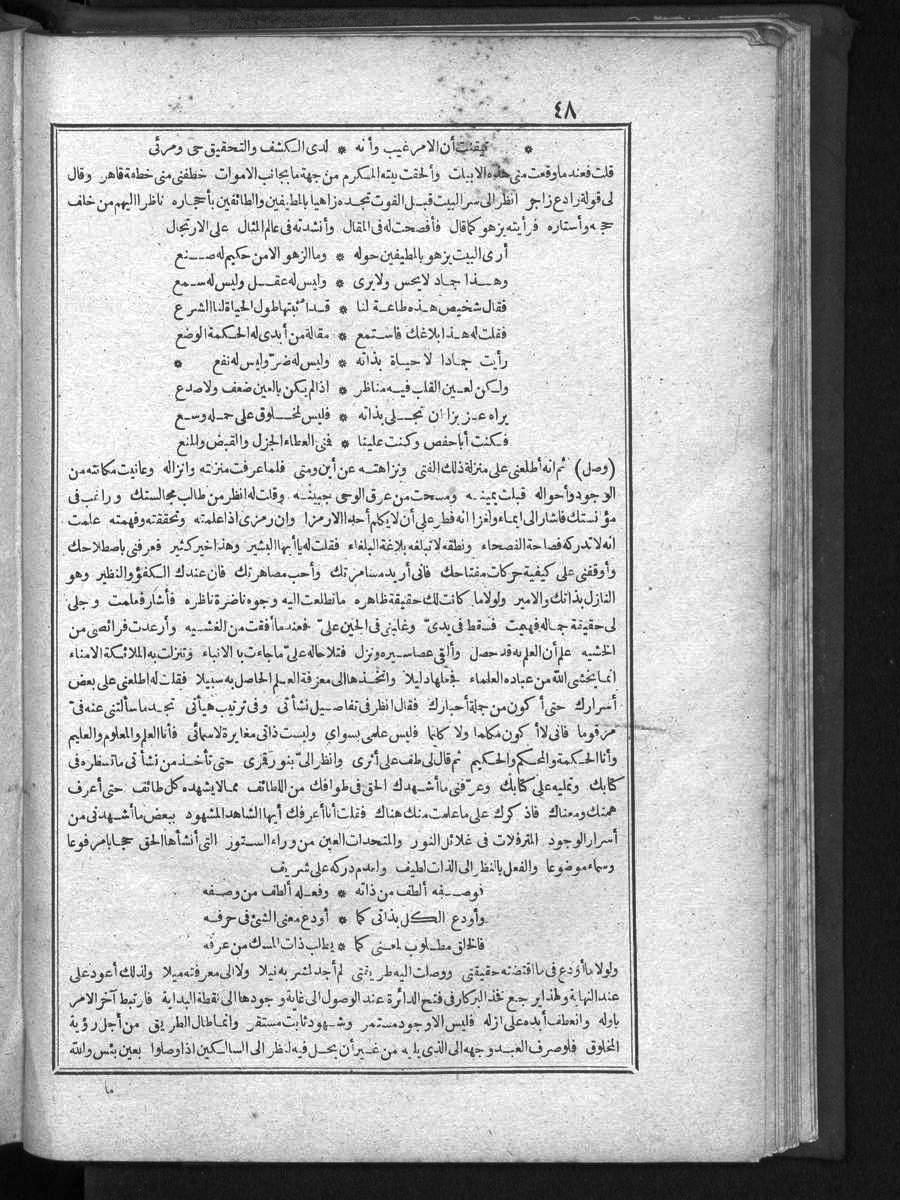 ٤٨
* تيقنت أن الامر غيب وأنه * لدى الكشف والتحقيق حى ومرئى
قلت فعند ما وقعت منى هذه الابيات وألحقت بيته المكرم من جهة ما بجانب الاموات خطفنى منى خطفة قاهر وقال
لى قولة رادع زاجر انظر الى سر البيت قبل الفوت تجده زاهيا بالمطيفين والطائفين بأحجاره ناظرا اليهم من خلف
حجبه وأستاره فرأيته يزهو كما قال فأفصحت له فى المقال وأنشدته فى عالم المثال على الارتجال
أرى البيت يزهو بالمطيفين حوله * وما الزهو الا من حكيم له صنع
وهذا جماد لا يحس ولا يرى * وليس له عقل وليس له سمع
فقال شخيص هذه طاعة لنا * قد أثبتها طول الحياة لنا الشرع
فقلت له هذا بلاغك فاستمع * مقالة من أبدى له الحكمة الوضع
رأيت جمادا لا حياة بذاته * وليس له ضرّ وليس له نفع *
ولكن لعين القلب فيه مناظر * اذا لم يكن بالعين ضعف ولا صدع
يراه عزيزا ان تجلى بذاته * فليس لمخلوق على حمله وسع
فكنت أبا حفص وكنت علينا * فمنى العطاء الجزل والقبض والمنع
(وصل) ثم انه أطلعنى على منزلة ذلك الفتى ونزاهته عن أين ومتى فلما عرفت منزلته وانزاله وعاينت مكانته من
الوجود وأحواله قبلت يمينه ومسحت من عرق الوحى جبينه وقلت له انظر من طالب مجالستك وراغب فى
مؤانستك فأشار الى ايماء ولغزا انه فطر على أن لا يكلم أحدا الا رمزا وان رمزى اذا علمته وتحققته وفهمته علمت
انه لا تدركه فصاحة الفصحاء ونطقه لا تبلغه بلاغة البلغاء فقلت له يا أيها البشير وهذا خير كثير فعرفنى باصطلاحك
وأوقفنى على كيفية حركات مفتاحك فانى أريد مسامرتك وأحب مصاهرتك فان عندك الكفؤ والنظير وهو
النازل بذاتك والامير ولولا ما كانت لك حقيقة ظاهره ما تطلعت اليه وجوه ناضرة ناظره فأشار فعلمت وجلى
لى حقيقة جماله فهيمت فسقط فى يدىّ وغلبنى فى الحين علىّ فعندما أفقت من الغشيه وأرعدت فرائصى من
الخشيه علم أن العلم به قد حصل وألقى عصا سيره ونزل فتلا حاله علىّ ما جاءت به الانباء وتنزلت به الملائكة الامناء
انما يخشى الله من عباده العلماء فجعلها دليلا واتخذها الى معرفة العلم الحاصل به سبيلا فقلت له اطلعنى على بعض
أسرارك حتى أكون من جملة أحبارك فقال انظر فى تفاصيل نشأتى وفى ترتيب هيأتى تجد ما سألتنى عنه فىّ
مرقوما فانى لا أكون مكلما ولا كليما فليس علمى بسواى وليست ذاتى مغايرة لاسمائى فأنا العلم والمعلوم والعليم
وأنا الحكمة والمحكم والحكيم ثم قال لى طف على أثرى وانظر الىّ بنور قمرى حتى تأخذ من نشأتى ما تسطره فى
كتابك وتمليه على كتابك وعرّفنى ما أشهدك الحق فى طوافك من اللطائف مما لا يشهده كل طائف حتى أعرف
همتك ومعناك فاذكرك على ما علمت منك هناك فقلت أنا أعرفك أيها الشاهد المشهود ببعض ما أشهدنى من
أسرار الوجود المترفلات فى غلائل النور والمتحدات العين من وراء الستور التى أنشأها الحق حجابا مرفوعا
وسماء موضوعا والفعل بالنظر الى الذات لطيف ولعدم دركه على شريف
فوصفه ألطف من ذاته * وفعله ألطف من وصفه
وأودع الكل بذاتى كما * أودع معنى الشئ فى حرفه
فالخلق مطلوب لمعنى كما * يطلب ذات المسك من عرفه
ولولا ما أودع فىّ ما اقتضته حقيقتى ووصلت اليه طريقتى لم أجد لشربه نيلا ولا الى معرفته ميلا ولذلك أعود علىّ
عند النهاية ولهذا يرجع فخذ البركار فى فتح الدائرة عند الوصول الى غاية وجودها الى نقطة البداية فارتبط آخر الامر
باوله وانعطف أبده على ازله فليس الا وجود مستمر وشهود ثابت مستقر وانما طال الطريق من أجل رؤية
المخلوق فلو صرف العبد وجهه الى الذى يليه من غير أن يحل فيه لنظر الى السالكين اذا وصلوا بعين بئس والله
ما